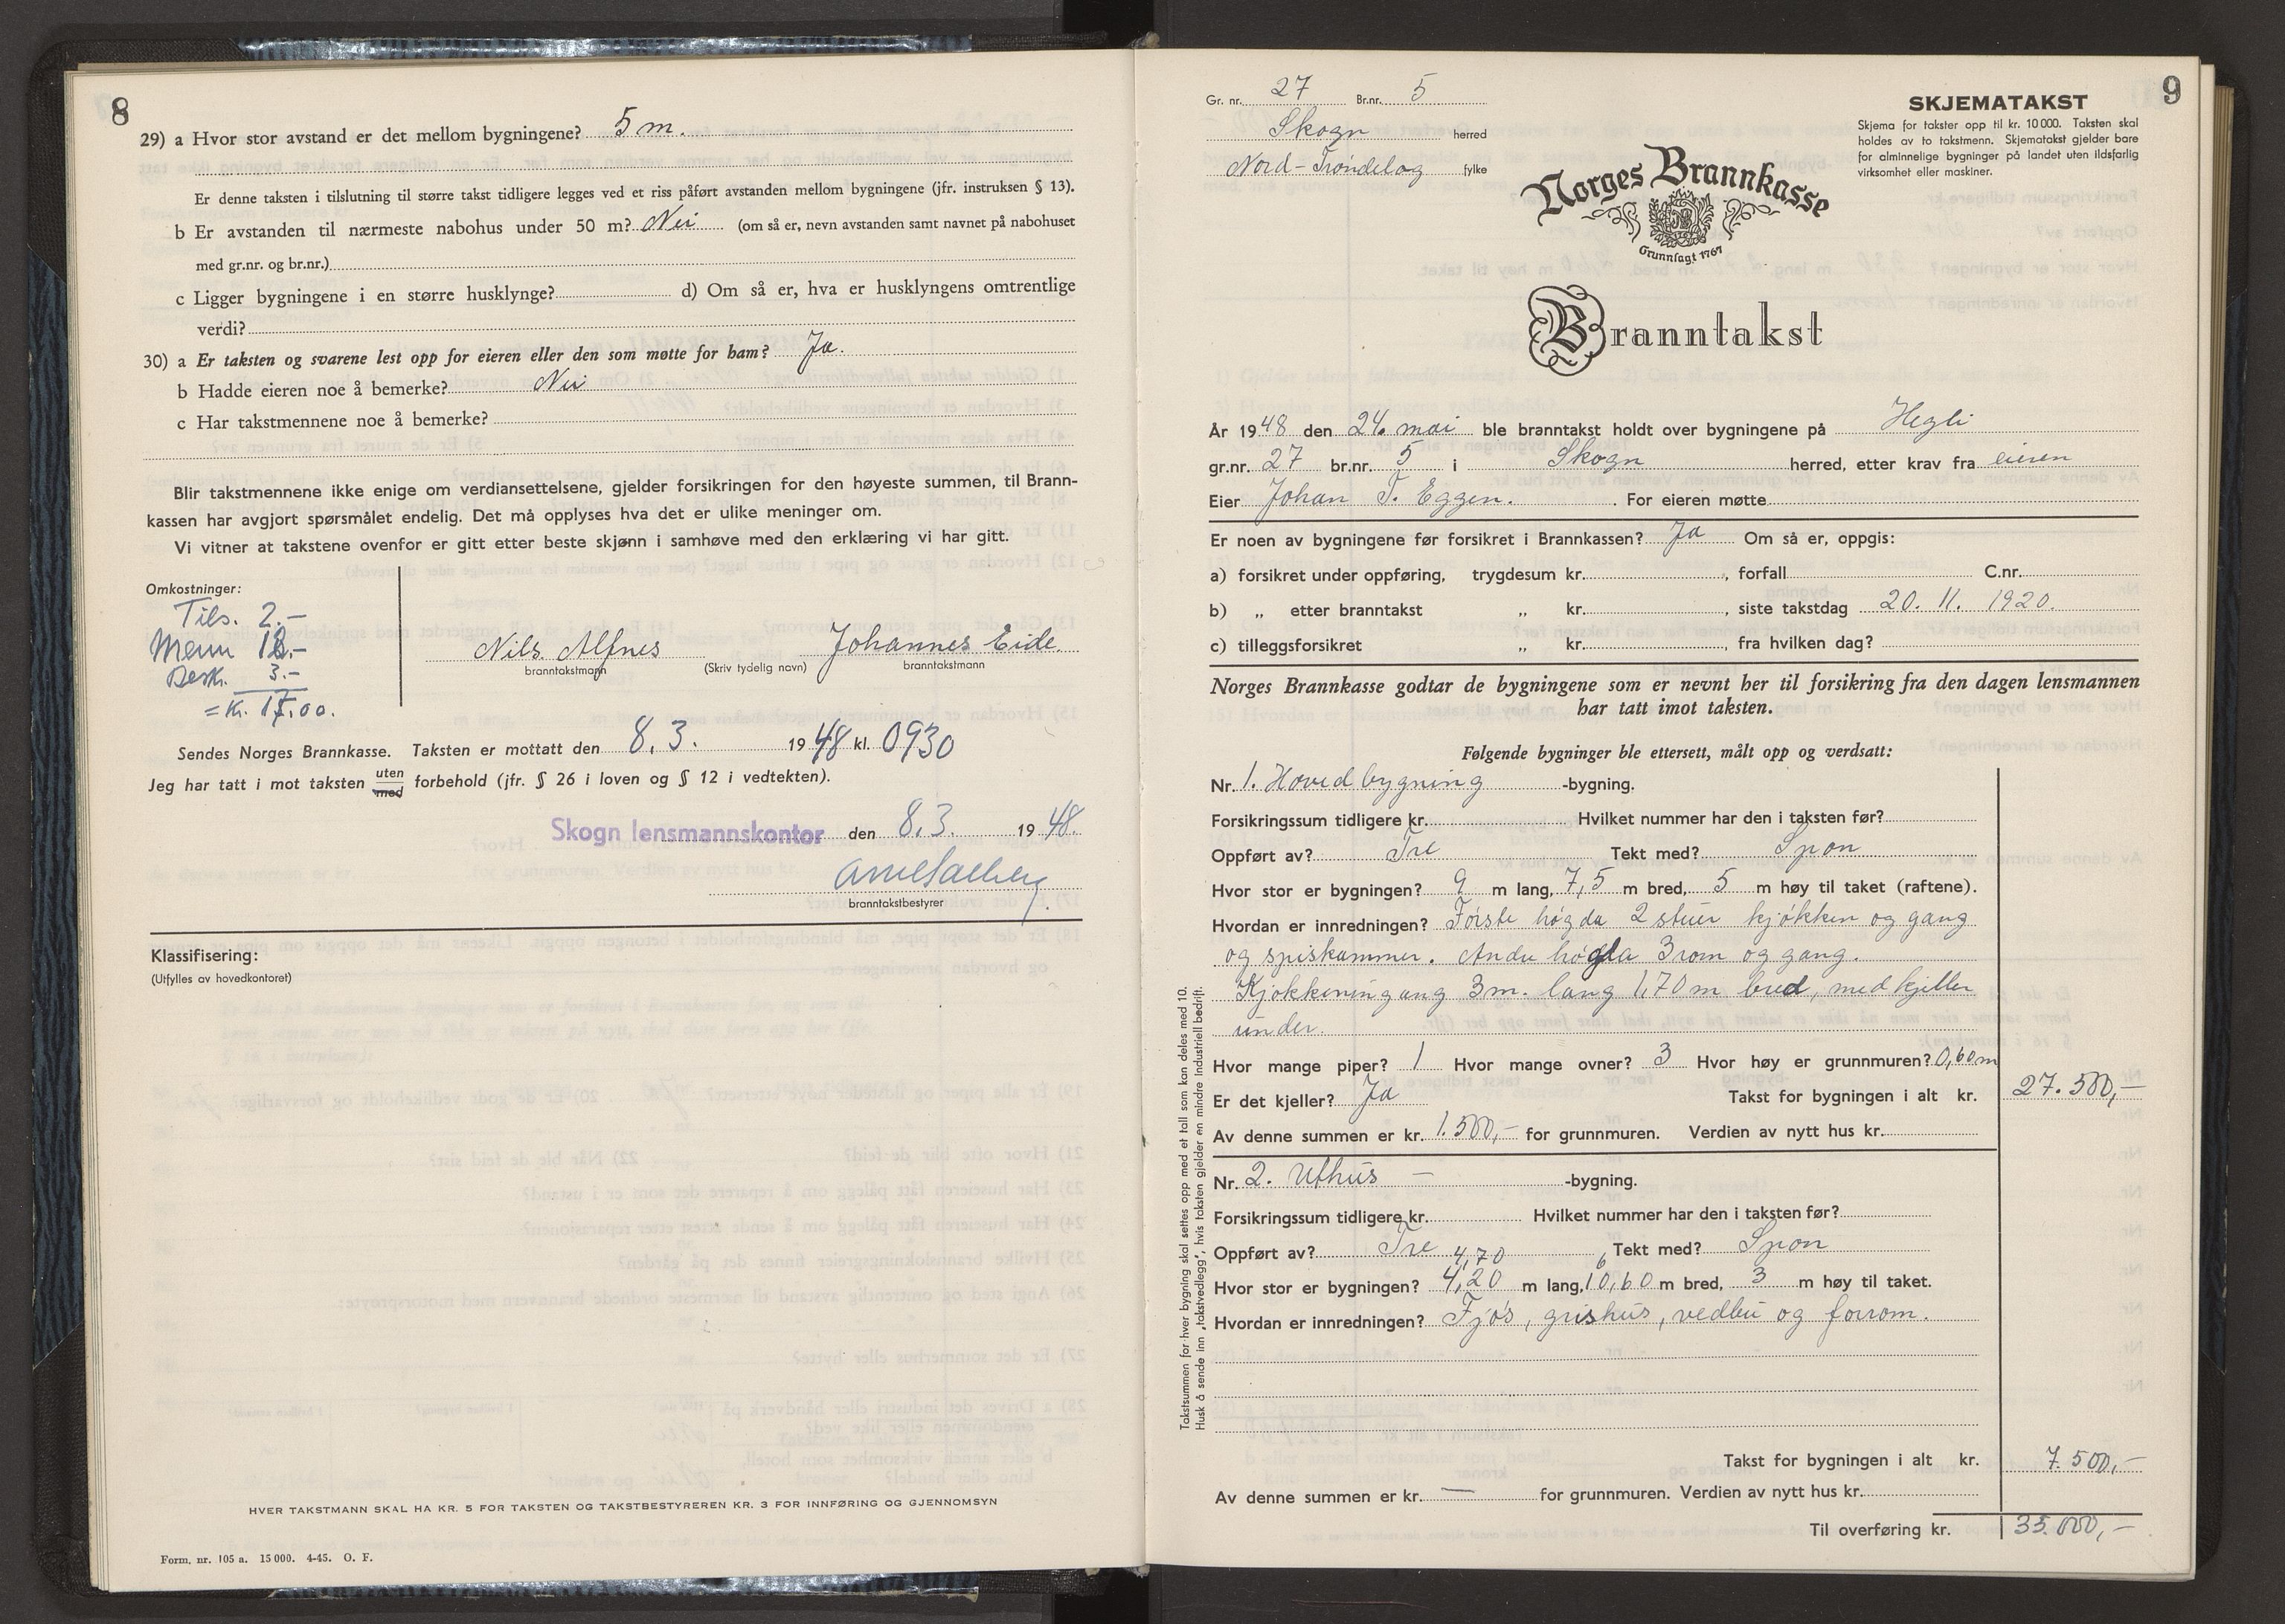 8
29) a Hvor stor avstand er det mellom bygningene? 5 m.
Er denne taksten i tilslutning til større takst tidligere legges ved et riss påført avstanden mellom bygningene (jfr. instruksen § 13).
b Er avstanden til nærmeste nabohus under 50 m? Nei (om så er, nevn avstanden samt navnet på nabohuset
med gr.nr. og br.nr.)
c Ligger bygningene i en større husklynge? d) Om så er, hva er husklyngens omtrentlige
verdi?
30) a Er taksten og svarene lest opp for eieren eller den som møtte for ham? Ja.
b Hadde eieren noe å bemerke? Nei
c Har takstmennene noe å bemerke?
Blir takstmennene ikke enige om verdiansettelsene, gjelder forsikringen for den høyeste summen, til Brann-
kassen har avgjort spørsmålet endelig. Det må opplyses hva det er ulike meninger om.
Vi vitner at takstene ovenfor er gitt etter beste skjønn i samhøve med den erklæring vi har gitt.
Omkostninger:
Tils. 2.-
Menn 12.-
Besk. 3.-
= Kr. 17,00.
Nils Alfnes Johannes Eide.
branntakstmann (Skriv tydelig navn) branntakstmann
Sendes Norges Brannkasse. Taksten er mottatt den 8.3. 1948 kl. 0930
Jeg har tatt i mot taksten uten med forbehold (jfr. § 26 i loven og § 12 i vedtekten).
Skogn lensmannskontor den 8.3. 1948.
branntakstbestyrer
Klassifisering:
(Utfylles av hovedkontoret)
HVER TAKSTMANN SKAL HA KR. 5 FOR TAKSTEN OG TAKSTBESTYREREN KR. 3 FOR INNFØRING OG GJENNOMSYN
Form. nr. 105 a. 15 000. 4-45. O. F.
9
Gr. nr. 27 Br.nr. 5
Skogn herred
Nord-Trøndelag fylke
SKJEMATAKST
Skjema for takster opp til kr. 10 000. Taksten skal
holdes av to takstmenn. Skjematakst gjelder bare
for alminnelige bygninger på landet uten ildsfarlig
virksomhet eller maskiner.
Norges Brannkasse
Grunnlagt 1767
Branntakst
År 1948 den 24. mai ble branntakst holdt over bygningene på Hegli
gr.nr. 27 br.nr. 5 i Skogn herred, etter krav fra eieren
Eier Johan T. Eggen. For eieren møtte
Er noen av bygningene før forsikret i Brannkassen? Ja Om så er, oppgis:
a) forsikret under oppføring, trygdesum kr. , forfall C.nr.
b) „ etter branntakst „ kr. , siste takstdag 20. 11. 1920.
c) tilleggsforsikret „ kr. , fra hvilken dag?
Norges Brannkasse godtar de bygningene som er nevnt her til forsikring fra den dagen lensmannen
har tatt imot taksten.
Følgende bygninger ble ettersett, målt opp og verdsatt:
Nr. 1. Hovedbygning -bygning.
Forsikringssum tidligere kr. Hvilket nummer har den i taksten før?
Oppført av? Tre Tekt med? Spon
Hvor stor er bygningen? 9 m lang, 7,5 m bred, 5 m høy til taket (raftene).
Hvordan er innredningen? Første høgda 2 stuer kjøkken og gang
og spiskammer. Andre høgda 3 rom og gang.
Kjøkkeningang 3 m. lang 1,70 m bred, med kjeller
under.
Hvor mange piper? 1 Hvor mange ovner? 3 Hvor høy er grunnmuren? 0,60 m
Er det kjeller? Ja Takst for bygningen i alt kr. 27.500,-
Av denne summen er kr. 1.500,- for grunnmuren. Verdien av nytt hus kr.
Nr. 2. Uthus — -bygning.
Forsikringssum tidligere kr. Hvilket nummer har den i taksten før?
Oppført av? Tre Tekt med? Spon
4,70 6
Hvor stor er bygningen? 4,20 m lang, 10,60 m bred, 3 m høy til taket.
Hvordan er innredningen? Fjøs, grishus, vedbu og forrom.
Takst for bygningen i alt kr. 7.500,-
Av denne summen er kr. — for grunnmuren. Verdien av nytt hus kr.
Til overføring kr. 35.000,-
Takstsummen for hver bygning skal settes opp med et tall som kan deles med 10.
Husk å sende inn „takstvedlegg", hvis taksten gjelder en mindre industriell bedrift.